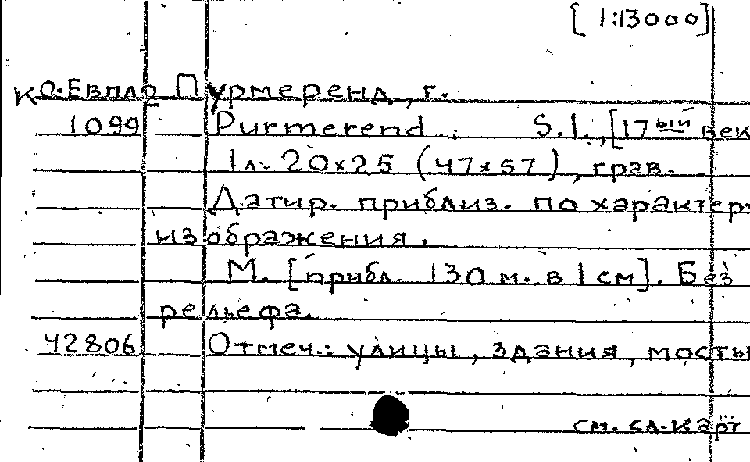 [1:13000]
КО.Евпл2 Пурмеренд, г.
1099 Purmerend. S.l., [17ый век
1л. 20х25 (47х57), грав.
Датир. приблиз. по характер
изображения.
М. [прибл. 130 м. в 1 см]. Без
рельефа.
42806 Отмеч.: улицы, здания, мосты
см. сл. карт